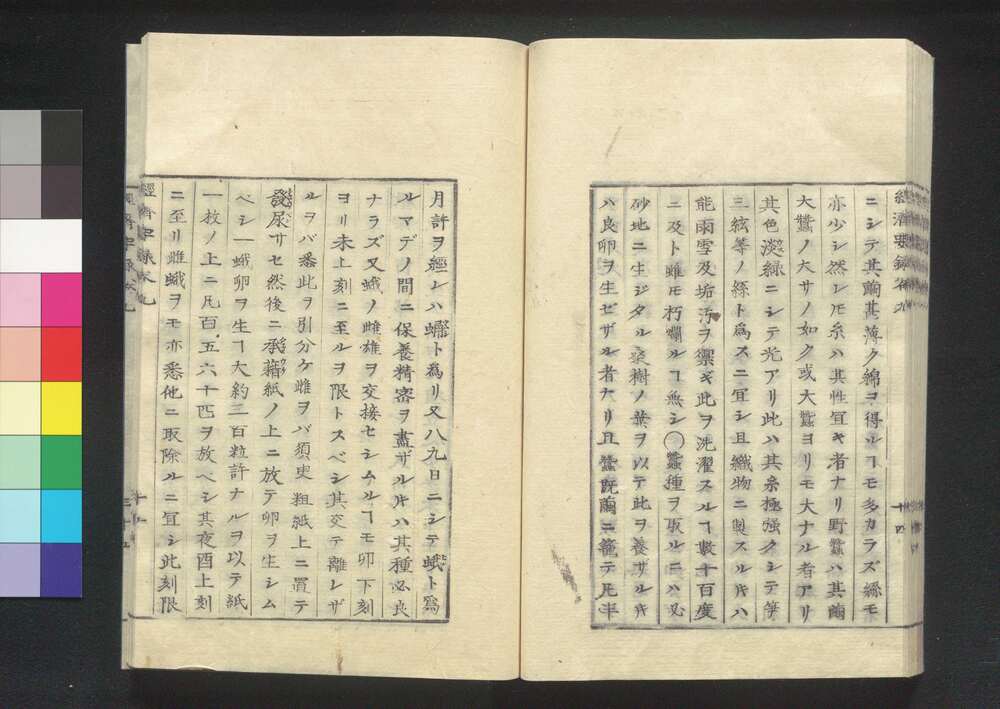 ニシテ其繭甚薄ク綿ヲ得ルヿモ多カラズ絲モ
亦少シ然レ𪜈糸ハ其性宜キ者ナリ野蠶ハ其繭
大蠶ノ大サノ如ク或大蠶ヨリモ大ナル者アリ
其色淡緑ニシテ光アリ此ハ其糸極强クシテ箏
三絃等ノ絲ト爲スニ宜シ且織物ニ製スル𪜈ハ
能雨雪及垢汚ヲ禦ギ此ヲ洗濯スルヿ數十百度
ニ及ト雖モ朽爛ルヿ無シ〇蠶種ヲ取ルニハ必
砂地ニ生ジタル桑樹ノ葉ヲ以テ此ヲ養ザル𪜈
ハ良卵ヲ生ゼザル者ナリ且蠶既繭ニ籠テ凡半
月許ヲ經レハ蛹ト爲リ又八九日ニシテ蛾ト爲
ルマデノ間ニ保養精密ヲ盡ザル𪜈ハ其種必良
ナラズ又蛾ノ雌雄ヲ交接セシムルヿモ卯下刻
ヨリ未上刻ニ至ルヲ限トスベシ其交テ離レザ
ルヲバ悉此ヲ引分ケ雌ヲバ須臾粗紙上ニ置テ
發尿サセ然後ニ承藉紙ノ上ニ放テ卵ヲ生シム
ベシ一蛾卵ヲ生ヿ大約三百粒許ナルヲ以テ紙
一枚ノ上ニ凡百五六十匹ヲ放ベシ其夜酉上刻
ニ至リ雌蛾ヲモ亦悉他ニ取除ルニ宜シ此刻限